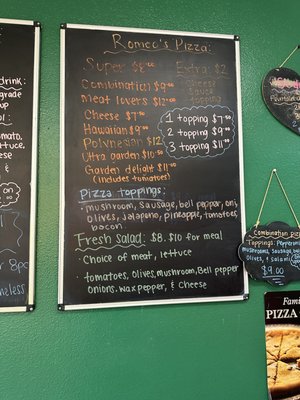 Romeo's Pizza:
Super $8.00
Combination $9.00
meat lovers $12.00
Cheese $7.00
Hawaiian $9.00
Polynesian $12
Ultra garden $10.50
Garden delight $11.00
(includes tomatoes)
Extra: $2
cheese
sauce
topping
1 topping $7.50
2 topping $9.00
3 topping $11.00
Pizza toppings:
- mushroom, Sausage, bell pepper, onions,
olives, jalapeno, pineapple, tomatoes,
bacon
Fresh Salad: $8. $10 for meal
· Choice of meat, lettuce
· tomatoes, Olives, mushroom, Bell pepper
onions, wax pepper, & Cheese
drink:
grade
up
lettuce,
8pc
Combination pizza
Toppings: Pepperoni
Mushrooms, Sausage, bell
Olives, & Salami
$9.00
Fami
PIZZA